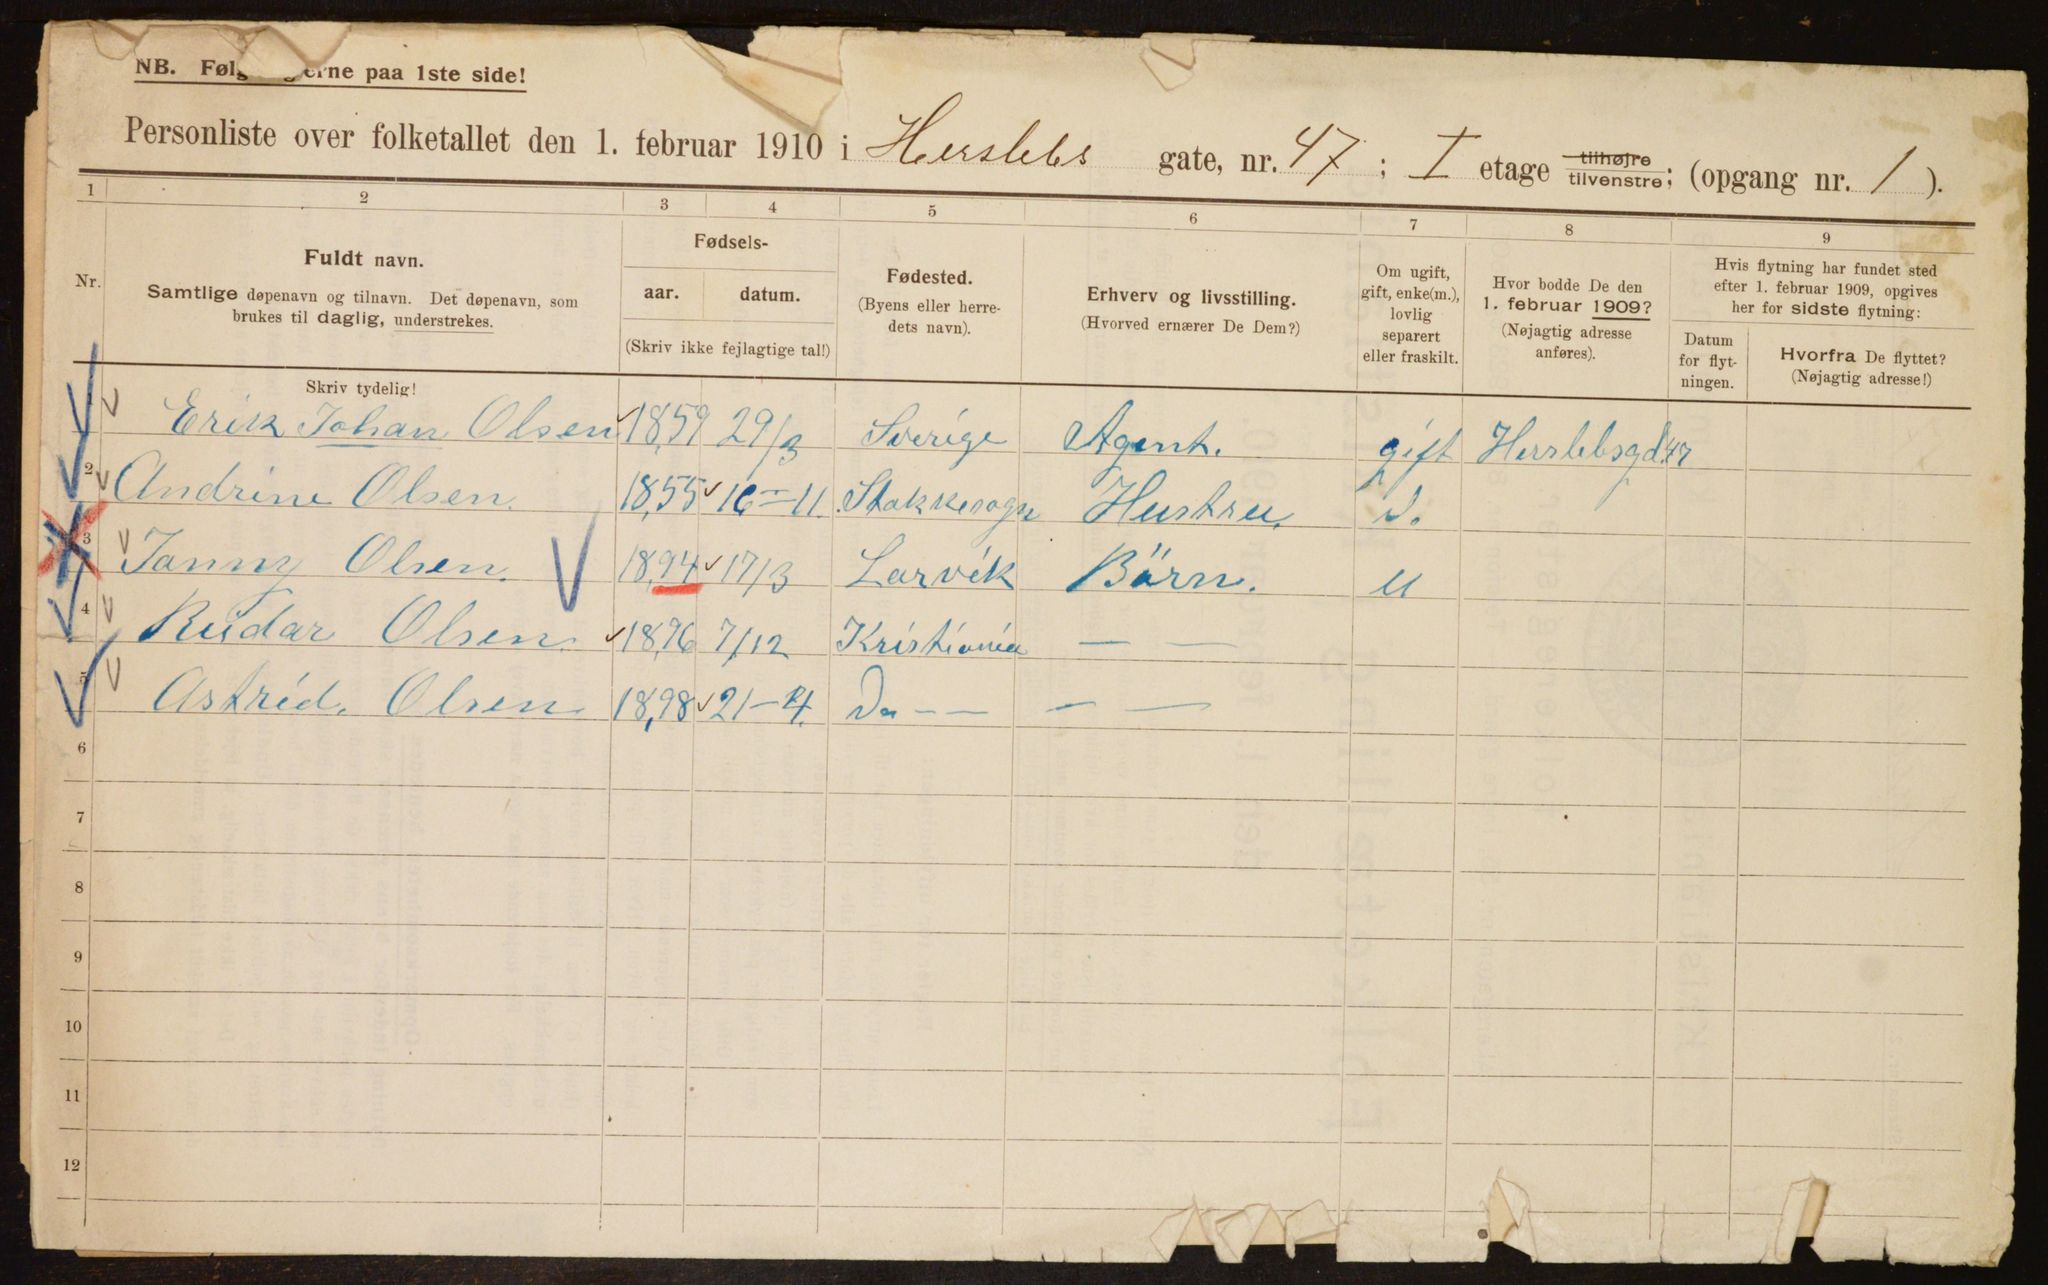 NB. Følg erne paa 1ste side!
Personliste over folketallet den 1. februar 1910 i Herslebs gate, nr. 47; I etage tilhøjre tilvenstre; (opgang nr. 1).
1 2 3 4 5 6 7 8 9
Nr.
Fuldt navn.
Samtlige døpenavn og tilnavn. Det døpenavn, som
brukes til daglig, understrekes.
Fødsels-
aar. datum.
(Skriv ikke fejlagtige tal!)
Fødested.
(Byens eller herre-
dets navn).
Erhverv og livsstilling.
(Hvorved ernærer De Dem?)
Om ugift,
gift, enke(m.),
lovlig
separert
eller fraskilt.
Hvor bodde De den
1. februar 1909?
(Nøjagtig adresse
anføres).
Hvis flytning har fundet sted
efter 1. februar 1909, opgives
her for sidste flytning:
Datum
for flyt-
ningen.
Hvorfra De flyttet?
(Nøjagtig adresse!)
Skriv tydelig!
Erik Johan Olsen 1859 29/3 Sverige Agent. gift Herslebsgd 47
2 Andrine Olsen. 1855 16-11 Stokkesogn Hustru. D.
3 Janny Olsen. 1894 17/3 Larvik Börn. U
4 Reidar Olsen 1896 7/12 Kristiania — —
5 Astrid. Olsen 1898 21-4. Do — — — —
6
7
8
9
10
11
12